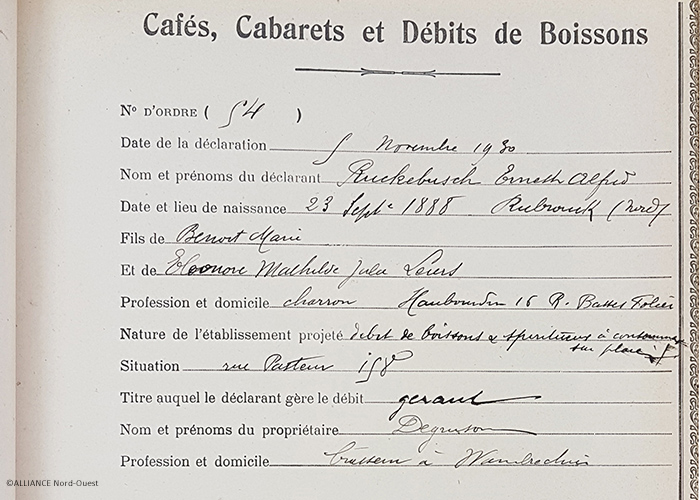 Cafés, Cabarets et Débits de Boissons
N° D'ORDRE ( 54 )
Date de la déclaration 5 Novembre 1930
Nom et prénoms du déclarant Ruckebusch Ernest Alfred
Date et lieu de naissance 23 Septe 1888 Rubrouck (Nord)
Fils de Benoit Marie
Et de Eleonore Mathilde Julie
Profession et domicile charron Haubourdin 16 R. Basses
Nature de l'établissement projeté debit de boissons & spiritueux à consommer
sur place
Situation rue Pasteur 158
Titre auquel le déclarant gère le débit gerant
Nom et prénoms du propriétaire
Profession et domicile à Wambrechies
©ALLIANCE Nord-Ouest